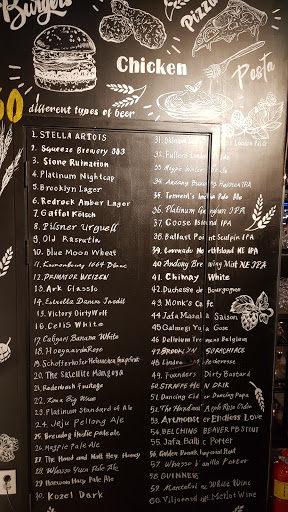 Burgers
Pizza
Chicken
Pasta
60 different types of beer
1. STELLA ARTOIS
2. Squeeze Brewery 303
3. Stone Ruination
4. Platinum Nightcap
5. Brooklyn Lager
6. Redrock Amber Lager
7. Gaffel Kölsch
8. Pilsner Urquell
9. Old Rasputin
10. Blue Moon Wheat
11. Kronenbourg 1664 Blanc
12. PRIMATOR WEIZEN
13. Ark Classic
14. Estrella Damm Inedit
15. Victory DirtyWolf
16. Celis White
17. Calgari Banana White
18. Hoegaarden Rose
19. Schofferhofer Hefeweizen Grapefruit
20. The Satellite Mangoya
21. Radenbach Fruitage
22. Kona Big Wave
23. Platinum Standard of Ale
24. Jeju Pellong Ale
25. Brewdog Indie Pale ale
26. Magpie Pale Ale
27. The Hand and Malt Hey, Honey
28. Whasu Yuza Pale Ale
29. Pale Ale
30. Kozel Dark
31.
32. Fullers
33. Magpie Winter
34. Andong Brewing IPA
35. Torment's India Pale Ale
36. Platinum IPA
37. Goose Island IPA
38. Ballast Point Sculpin IPA
39. Northland NE IPA
40. Andong Brewing Mist NE IPA
41. Chimay White
42. Duchesse de Bourgogne
43. Monk's Cafe
44. Jafa Saison
45. Galmegi Yuja Gose
46. Delirium Tremens Belgium
47.
48. Lindemans
49. Founders Dirty Bastard
50. STRAFFE HENDRIK
51. Dancing Cider Dancing Papa
52. The Hand and Apple
53. Artmonster Endless Love
54. BELCHING BEAVER PB STOUT
55. Jafa Baltic Porter
56. Golden Imperial Stout
57. Whasu Vanilla Porter
58. GUINNESS
59. White Wine
60. Merlot Wine